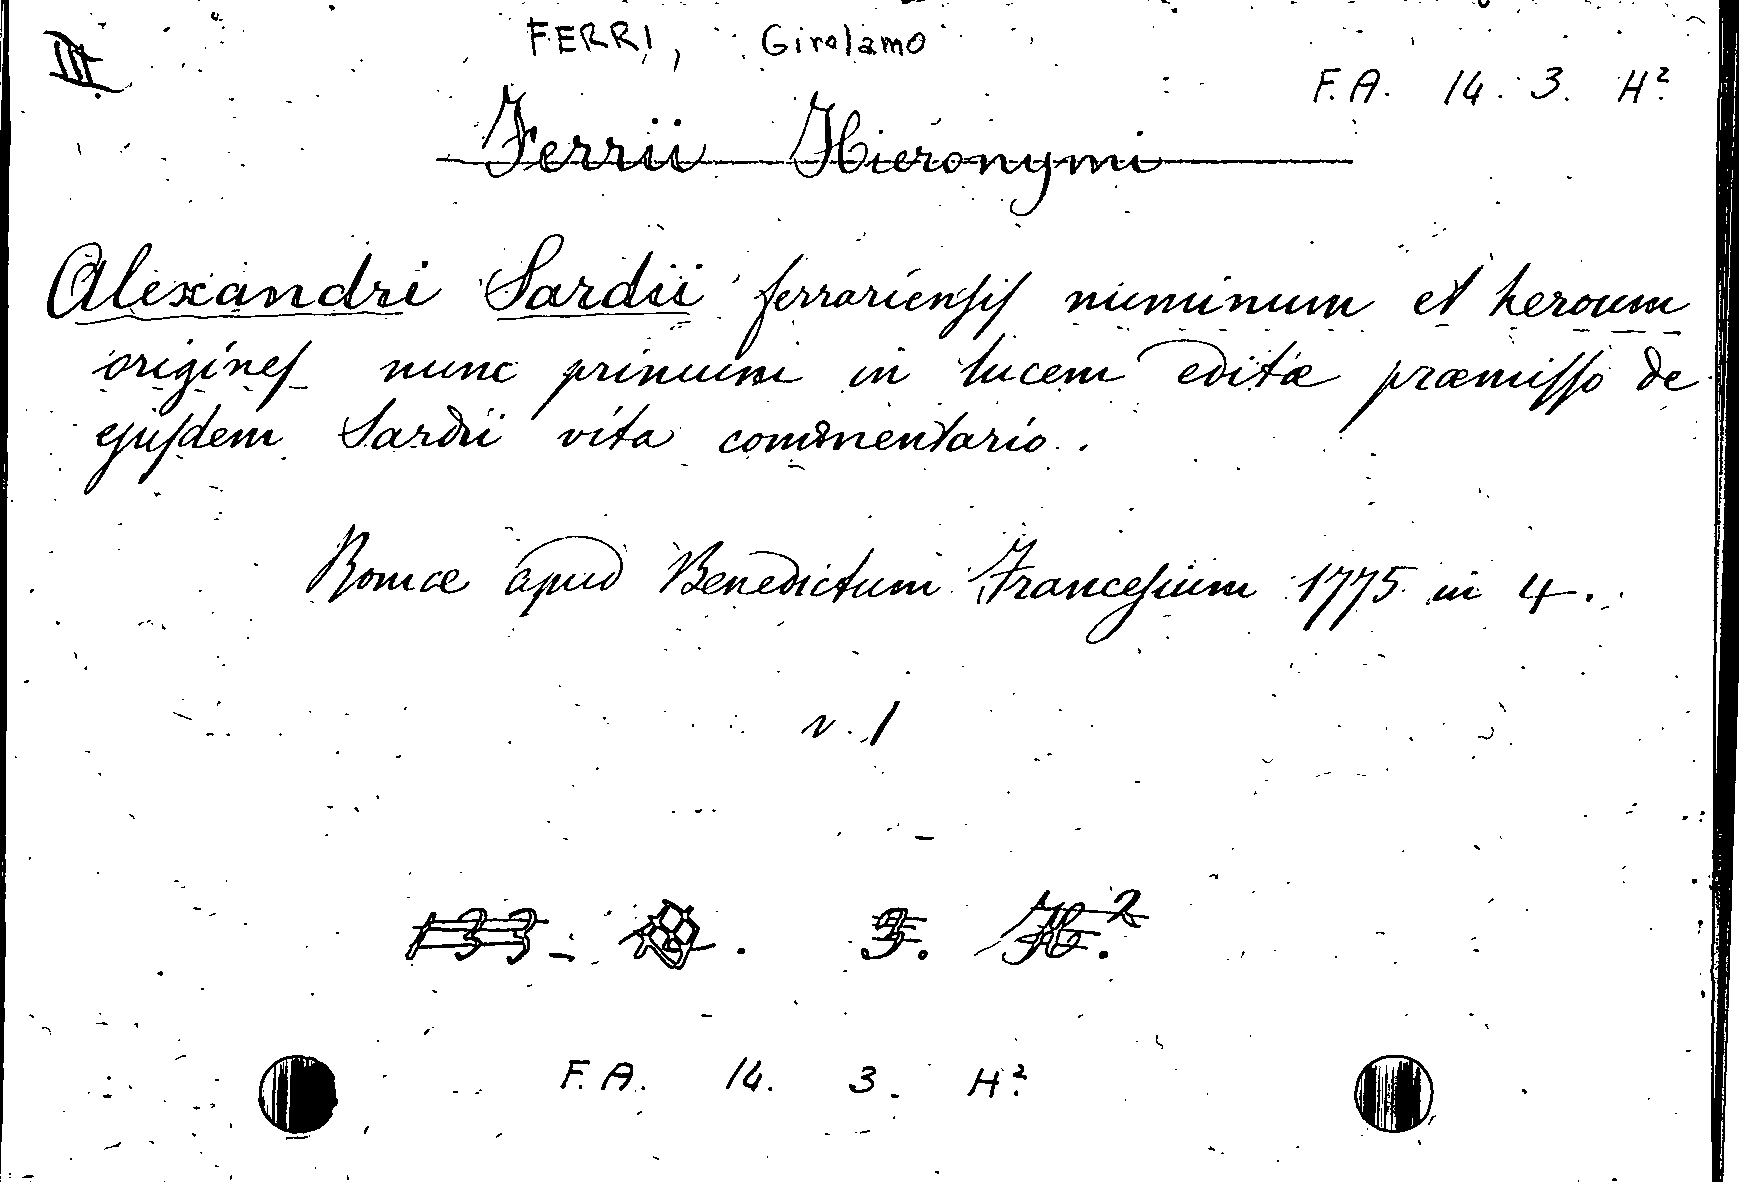 III.
FERRI, Girolamo
F.A. 14. 3. H².
Ferrii Hieronymi
Alexandri Sardii ferrariensis numinum et heroum
origines nunc primum in lucem editæ præmisso de
ejusdem Sardii vita commentario.
Romæ apud Benedictum Francesium 1775 in 4.
v. 1
133 - . 3. H.²
F.A. 14. 3. H².